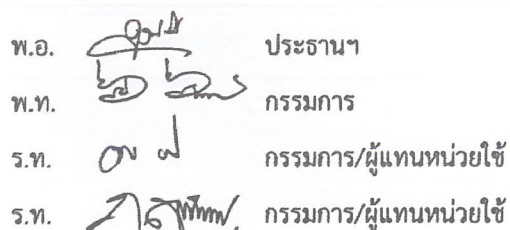 พ.อ. ประธานฯ
พ.ท. กรรมการ
ร.ท. กรรมการ/ผู้แทนหน่วยใช้
ร.ท. กรรมการ/ผู้แทนหน่วยใช้